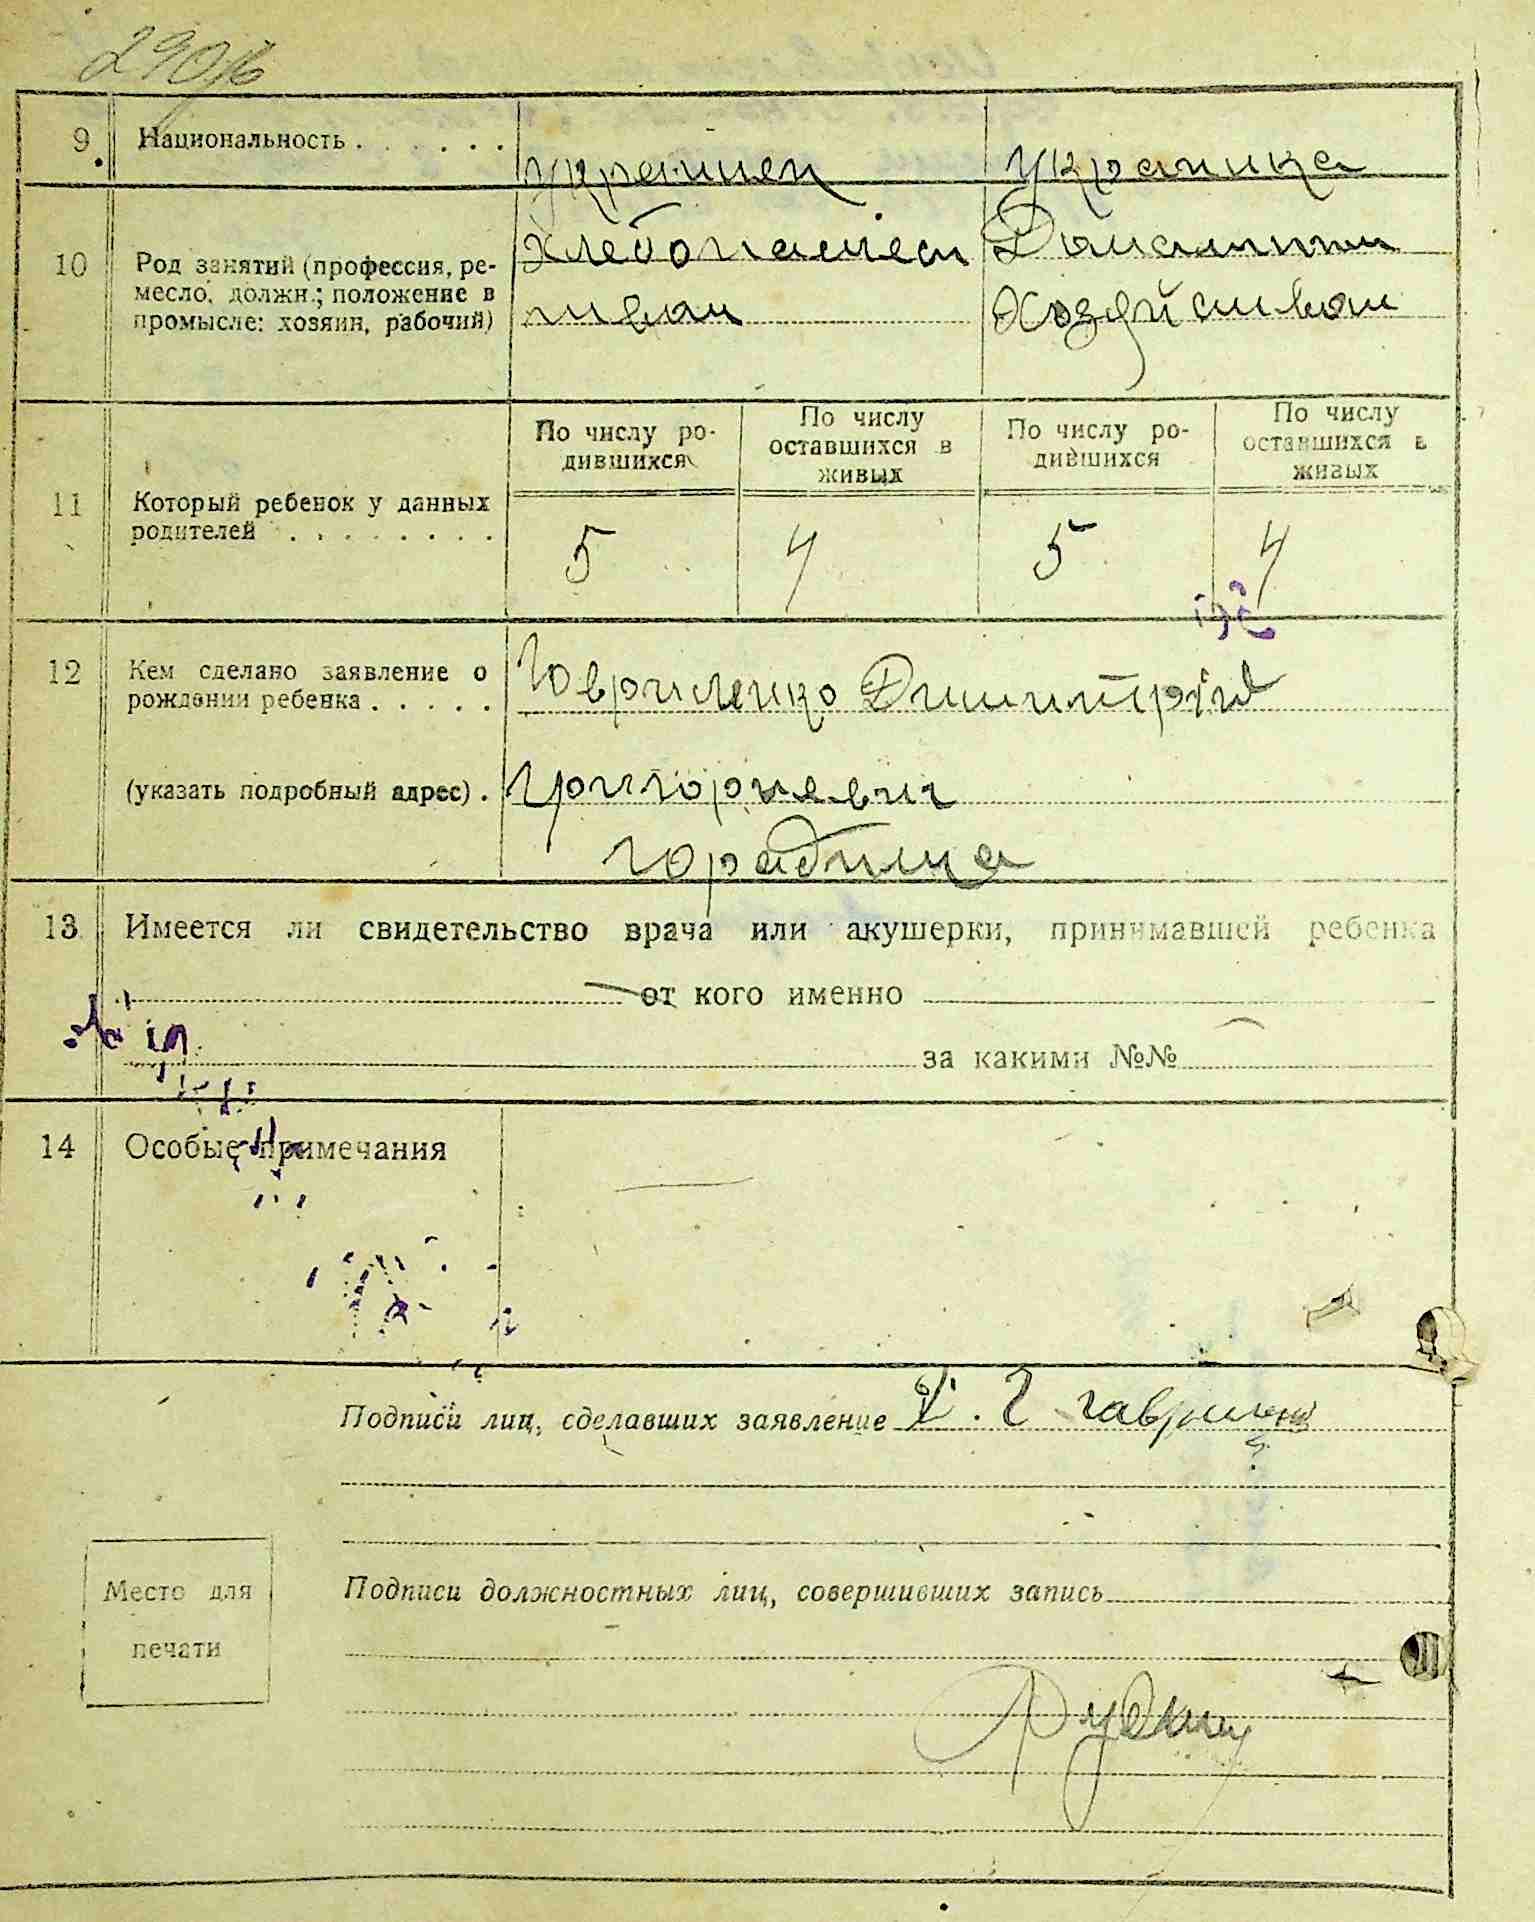 290/б
9 Национальность . . . . . .
украинец украинка
10 Род занятий (профессия, ре-
месло, должн.; положение в
промысле: хозяин, рабочий)
хлебопашест Домашним
твом хозяйством
11 Который ребенок у данных
родителей . . . . . . . .
По числу ро-
дившихся
По числу
оставшихся в
живых
По числу ро-
дившихся
По числу
оставшихся в
живых
5 4 5 4
12 Кем сделано заявление о
рождении ребенка . . . . .
(указать подробный адрес) .
Гавриленко Дмитрий
Григориевич
13 Имеется ли свидетельство врача или акушерки, принимавшей ребенка
от кого именно
за какими №№
14 Особые примечания
Подписи лиц, сделавших заявление Д. Г
Место для
печати
Подписи должностных лиц, совершивших запись